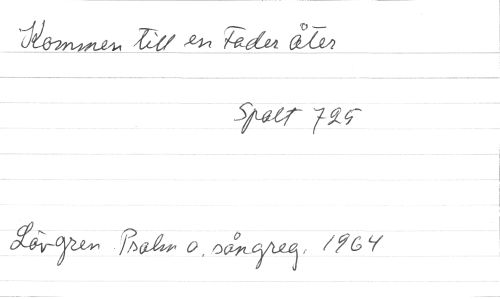 Kommen till en Fader åter
Spalt 725
Lövgren Psalm o. sångreg. 1964